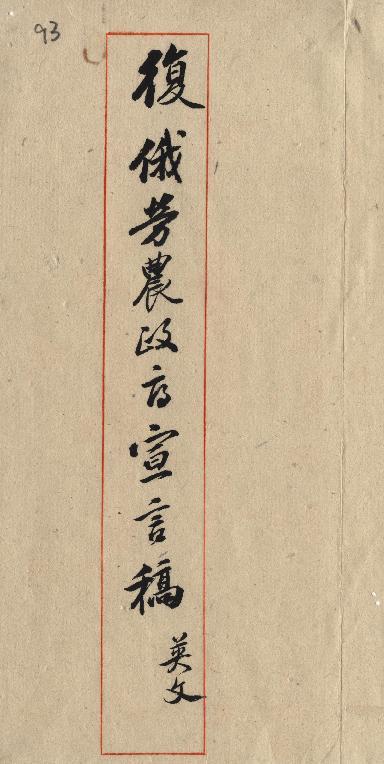 93
復俄劳農政府宣言稿
英文